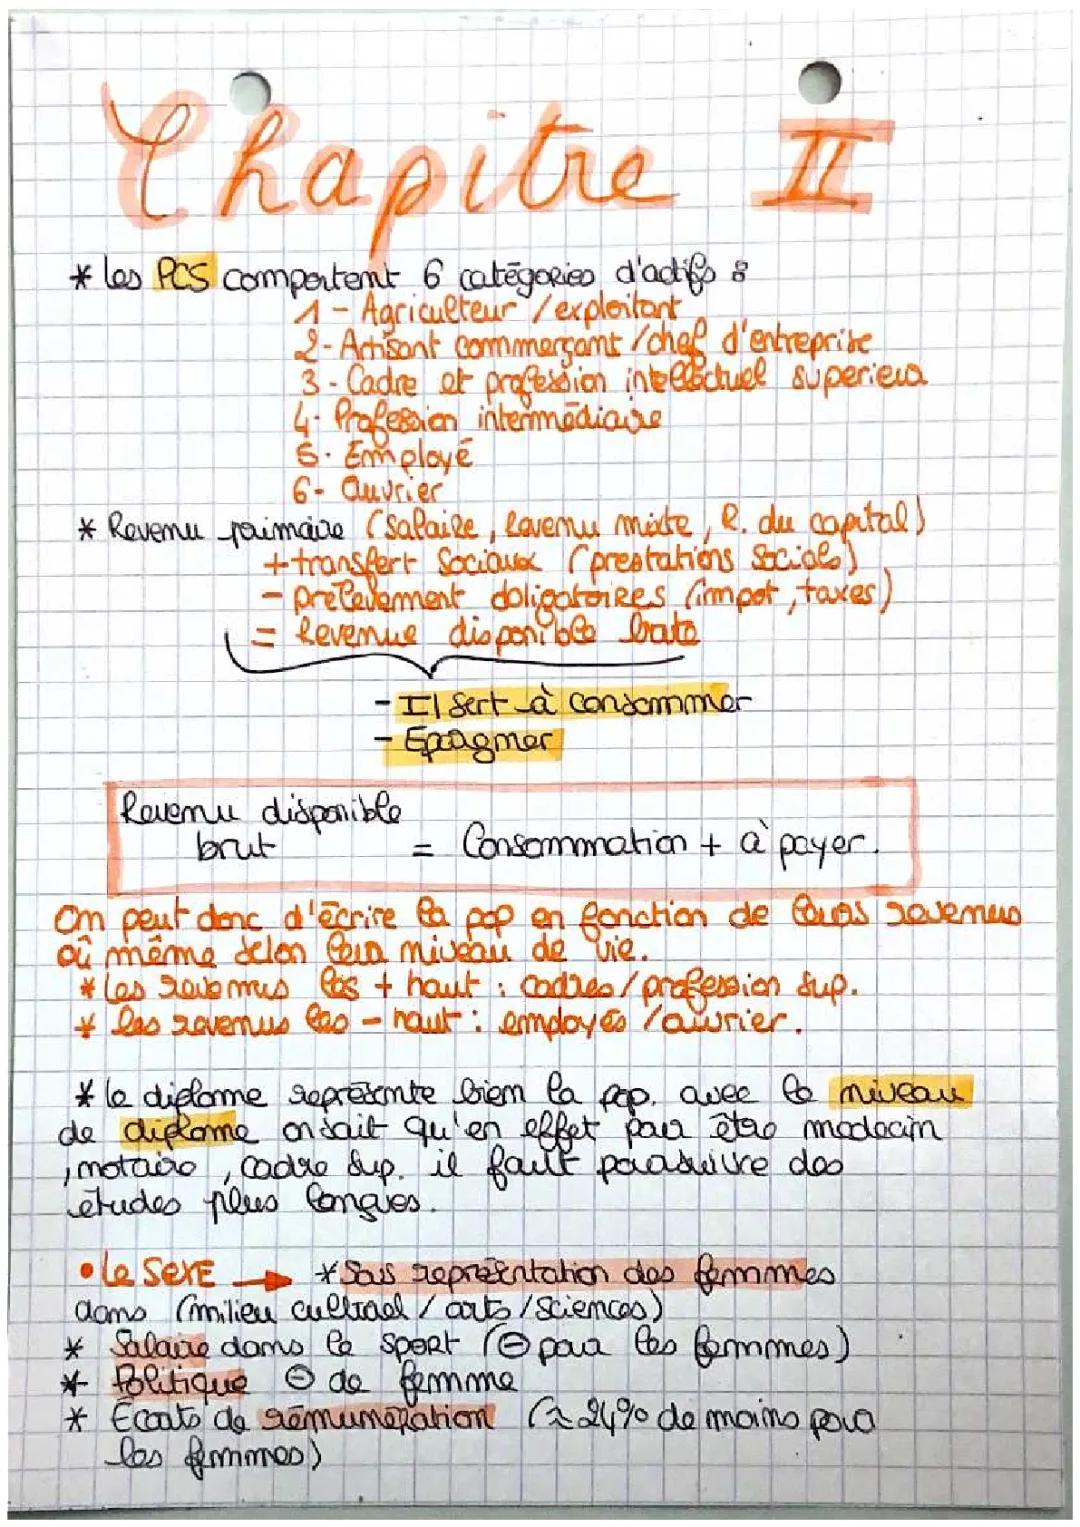 Chapitre II
* les PCS comportent 6 catégories d'actifs :
1 - Agriculteur / exploitant
2 - Artisant commerçant / chef d'entreprise
3 - Cadre et profession intellectuel superieur
4 - Profession intermédiaire
5 - Employé
6 - Ouvrier
* Revenu primaire (Salaire, Revenu mixte, R. du capital)
+ transfert Sociaux (prestations Social)
- prélevement obligatoires (impot, taxes)
= Revenue disponible brute
- Il sert à consommer
- Epargner
Revenu disponible
brut = Consommation + à payer.
On peut donc d'écrire la pop en fonction de leurs revenus
où même selon leur niveau de vie.
* Les revenus les + haut : cadres / profession sup.
* les revenus les - haut : employés / ouvrier.
* le diplome représente bien la pop. avec le niveau
de diplome on sait qu'en effet pour être medecin
, notaire, cadre sup. il faut poursuivre des
études plus longues.
• Le SEXE → * Sous représentation des femmes
dans (milieu culturel / arts / sciences)
* Salaire dans le sport (⊖ pour les femmes)
* Politique ⊖ de femme
* Ecarts de rémunération (≈ 24% de moins pour
les femmes)